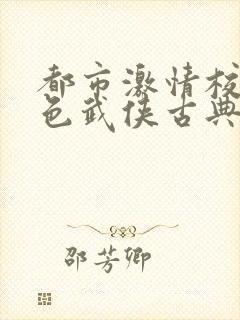 都市激情校
色武侠古典
邵芳卿